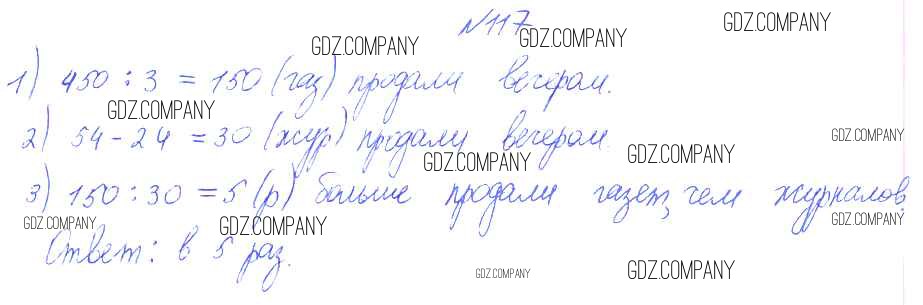 №117
GDZ.COMPANY GDZ.COMPANY GDZ.COMPANY
1) 450 : 3 = 150 (газ) продали вечером.
GDZ.COMPANY
2) 54 - 24 = 30 (жур) продали вечером.
GDZ.COMPANY
GDZ.COMPANY GDZ.COMPANY
3) 150 : 30 = 5 (р) больше продали газет, чем журналов
GDZ.COMPANY GDZ.COMPANY GDZ.COMPANY
Ответ: в 5 раз.
GDZ.COMPANY GDZ.COMPANY